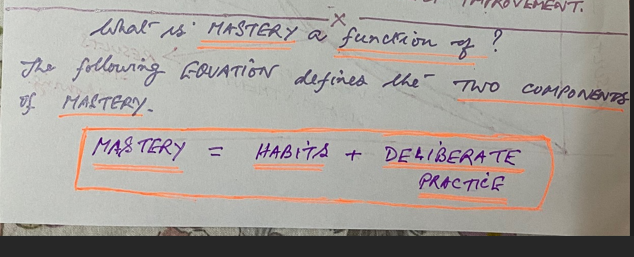 IMPROVEMENT.
x
What is MASTERY a function of ?
The following EQUATION defines the TWO COMPONENTS
of MASTERY.
MASTERY = HABITS + DELIBERATE
PRACTICE